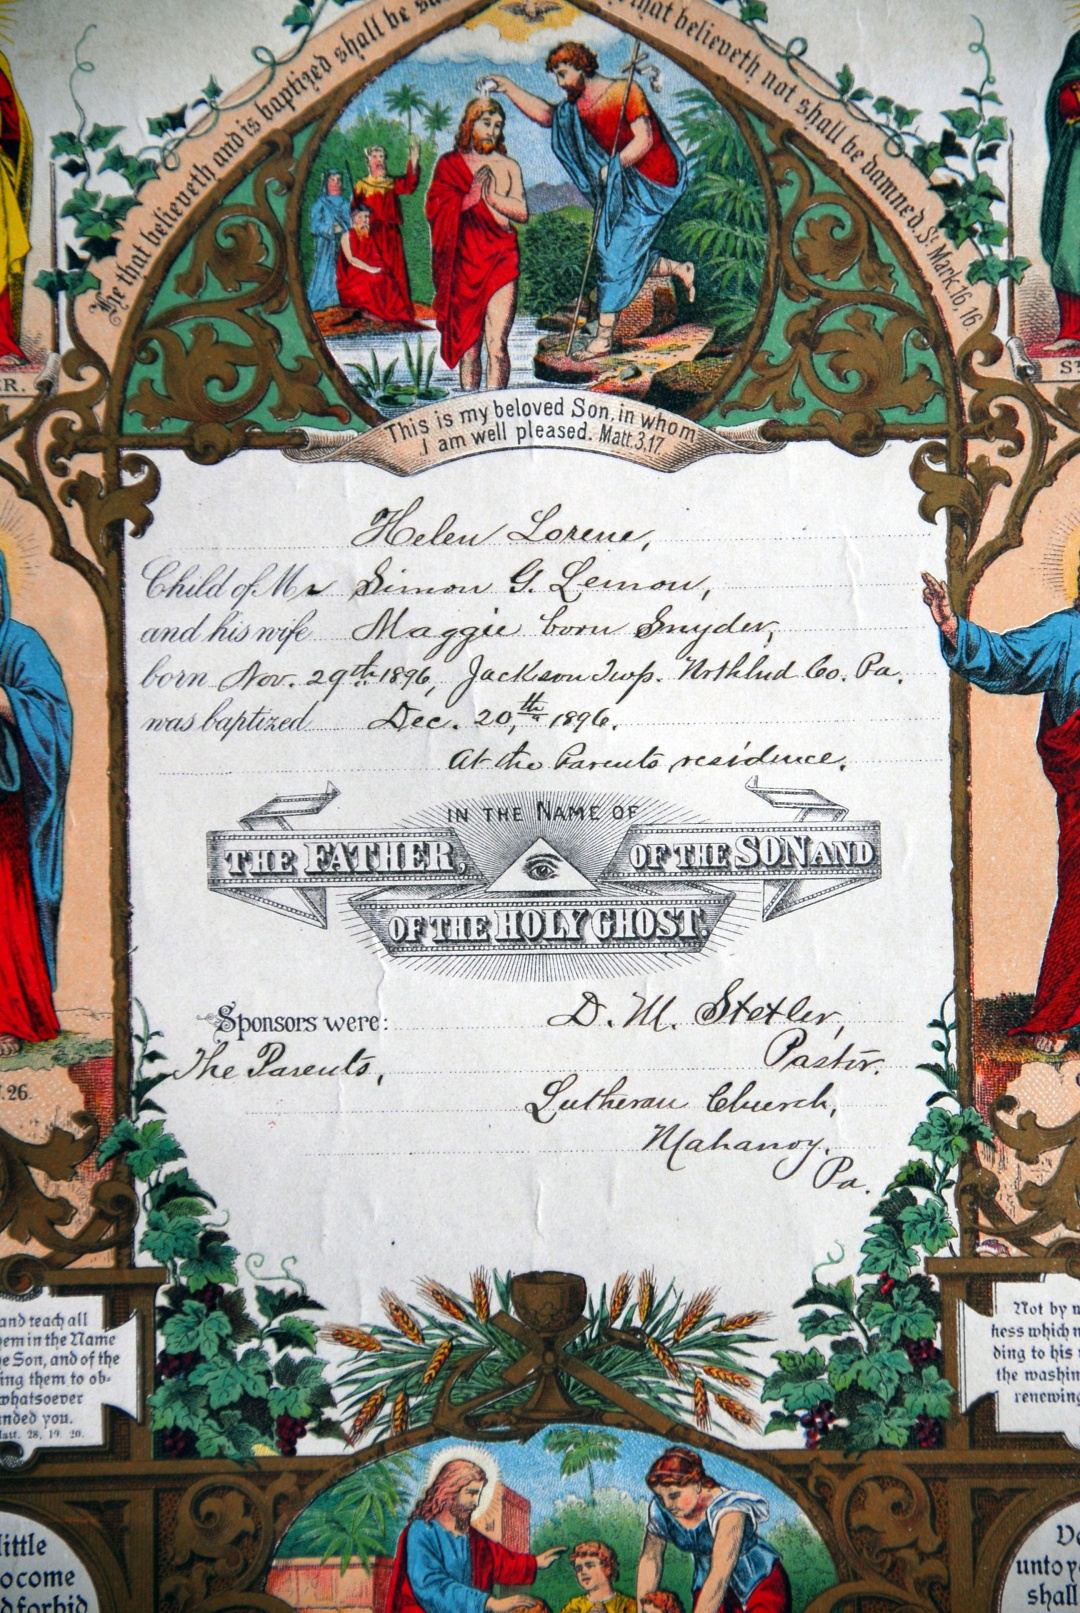 He that believeth and is baptized shall be
that believeth not shall be damned. St Mark, 16, 16
ER.
ST
This is my beloved Son, in whom
I am well pleased. Matt. 3, 17.
Helen Lorene,
Child of Mr Simon G. Lemon,
and his wife Maggie born Snyder,
born Nov. 29th 1896, Jackson Twp. Northld Co. Pa.
was baptized Dec. 20,th 1896.
At the Parents residence.
IN THE NAME OF
THE FATHER, OF THE SON AND
OF THE HOLY GHOST.
Sponsors were: D. M. Stetler,
Pastor.
The Parents,
Lutheran Church,
Mahanoy,
Pa.
.26.
and teach all
hem in the Name
e Son, and of the
ing them to ob-
whatsoever
nded you.
Matt. 28, 19. 20.
Not by
ness which
ding to his
the washin
renewing
ittle
o come
d forbid
unto
shall